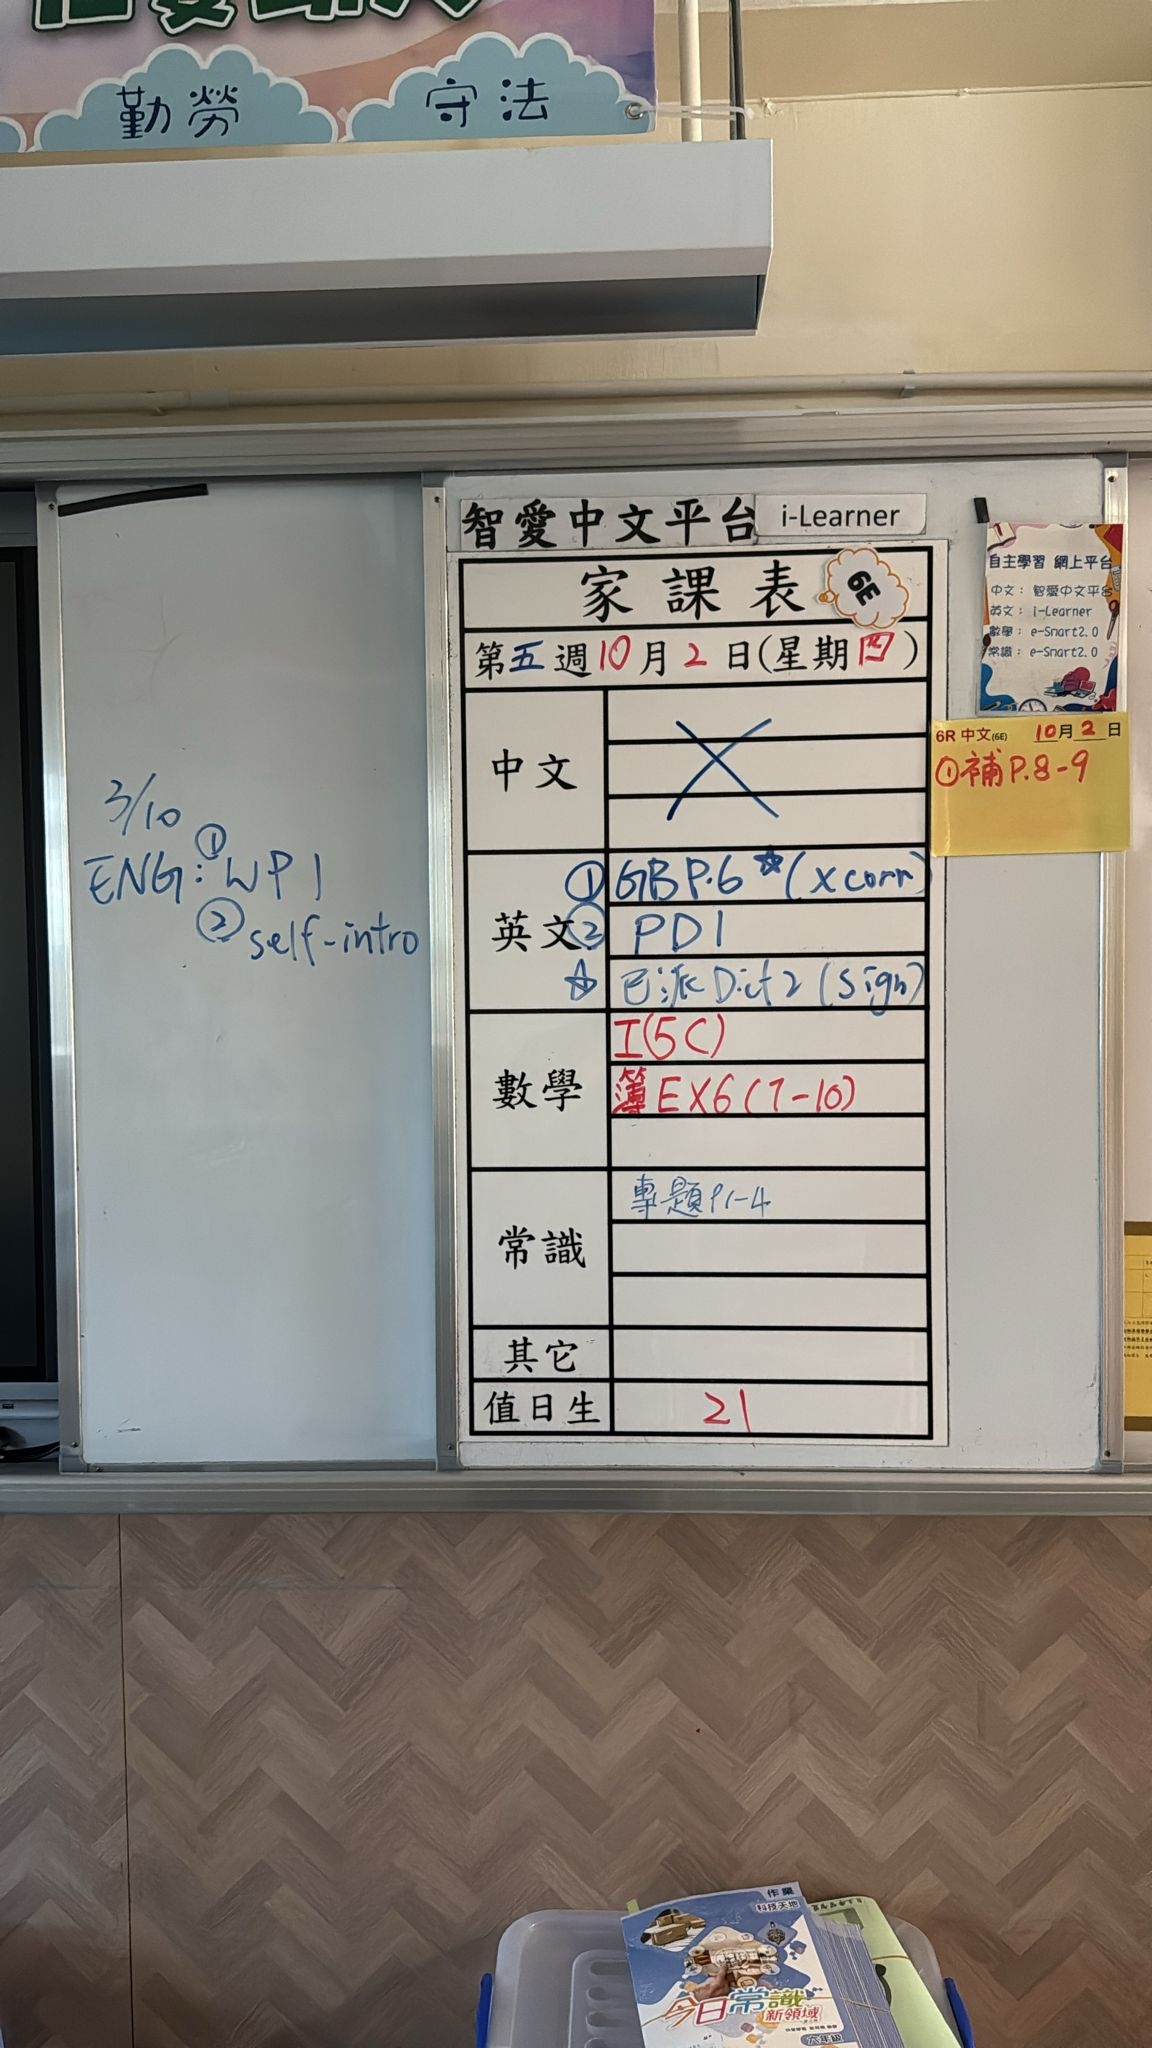 勤勞
守法
智愛中文平台 i-Learner
家課表 6E
第五週10月2日(星期四)
中文
英文
① GB P.6 ☆ (x corr)
② PD1
☆ 已派 Dict 2 (sign)
數學
I(5C)
簿 EX6 (7-10)
常識
專題 P1-4
其它
值日生
21
3/10
ENG: ① WP1
② self-intro
自主學習 網上平台
中文: 智愛中文平台
英文: i-Learner
數學: e-Smart2.0
常識: e-Smart2.0
6R 中文(6E) 10月2日
①補P.8-9
作業
科技天地
今日常識
新領域
六年級